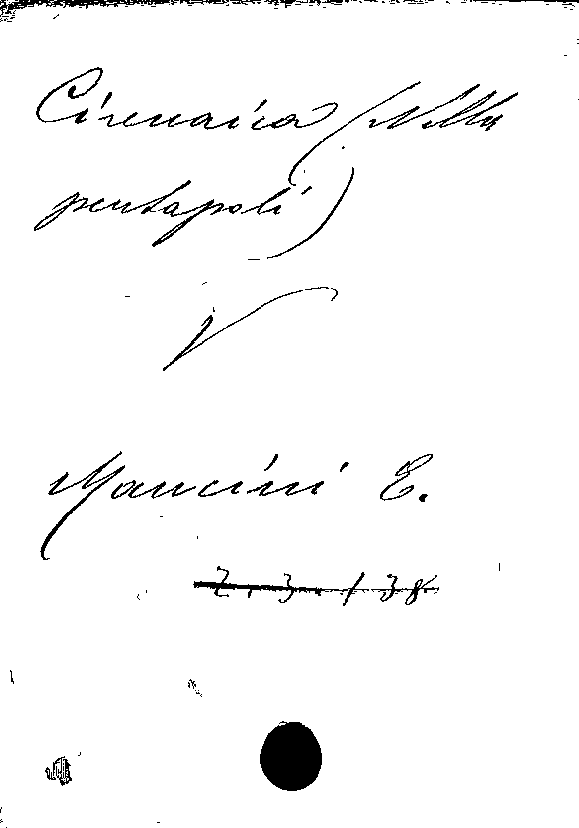 Cirenaica (Nella
pentapoli)
V
Mancini E.
2.3./38